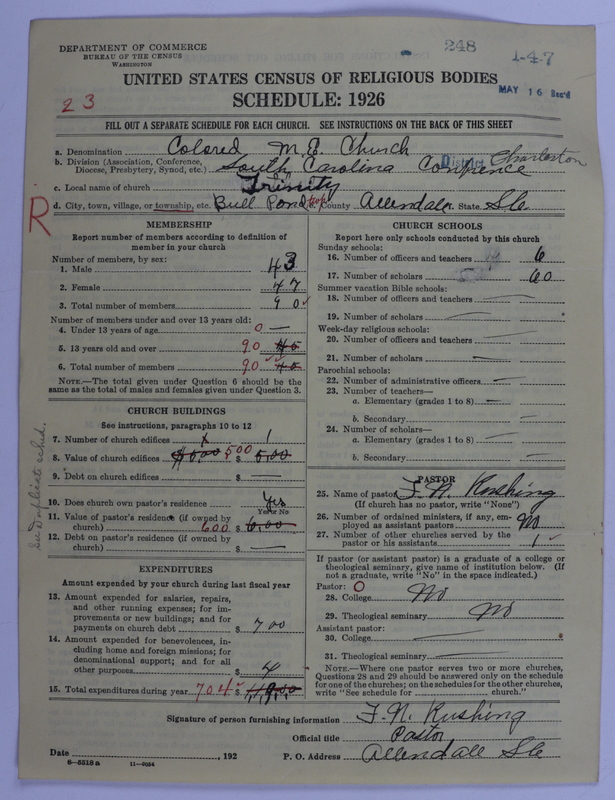 248
1-4-7
DEPARTMENT OF COMMERCE
BUREAU OF THE CENSUS
WASHINGTON
UNITED STATES CENSUS OF RELIGIOUS BODIES
MAY 16 Rec'd
23
SCHEDULE: 1926
FILL OUT A SEPARATE SCHEDULE FOR EACH CHURCH. SEE INSTRUCTIONS ON THE BACK OF THIS SHEET
a. Denomination Colored M. E. Church
b. Division (Association, Conference, Diocese, Presbytery, Synod, etc.) South Carolina Conference District Charleston
c. Local name of church Trinity
d. City, town, village, or township, etc. Bull Pond twp. County Allendale State S.C.
R
MEMBERSHIP
Report number of members according to definition of
member in your church
Number of members, by sex:
1. Male 43
2. Female 47
3. Total number of members 90
Number of members under and over 13 years old:
4. Under 13 years of age 0 —
5. 13 years old and over 90
6. Total number of members 90
NOTE.—The total given under Question 6 should be
the same as the total of males and females given under Question 3.
CHURCH BUILDINGS
See instructions, paragraphs 10 to 12
7. Number of church edifices 1
8. Value of church edifices $ 500
9. Debt on church edifices $ —
10. Does church own pastor's residence Yes
Yes or No
11. Value of pastor's residence (if owned by
church) 600 $ 6.00
12. Debt on pastor's residence (if owned by
church) $ —
See Duplicate sched.
EXPENDITURES
Amount expended by your church during last fiscal year
13. Amount expended for salaries, repairs,
and other running expenses; for im-
provements or new buildings; and for
payments on church debt $ 700
14. Amount expended for benevolences, in-
cluding home and foreign missions; for
denominational support; and for all
other purposes $ 4
15. Total expenditures during year 704 $
CHURCH SCHOOLS
Report here only schools conducted by this church
Sunday schools:
16. Number of officers and teachers 6
17. Number of scholars 60
Summer vacation Bible schools:
18. Number of officers and teachers —
19. Number of scholars —
Week-day religious schools:
20. Number of officers and teachers —
21. Number of scholars —
Parochial schools:
22. Number of administrative officers —
23. Number of teachers—
a. Elementary (grades 1 to 8) —
b. Secondary —
24. Number of scholars—
a. Elementary (grades 1 to 8) —
b. Secondary —
PASTOR
25. Name of pastor F. N. Rushing
(If church has no pastor, write "None")
26. Number of ordained ministers, if any, em-
ployed as assistant pastors No
27. Number of other churches served by the
pastor or his assistants 1
If pastor (or assistant pastor) is a graduate of a college or
theological seminary, give name of institution below. (If
not a graduate, write "No" in the space indicated.)
Pastor: O
28. College No
29. Theological seminary No
Assistant pastor:
30. College —
31. Theological seminary —
NOTE.—Where one pastor serves two or more churches,
Questions 28 and 29 should be answered only on the schedule
for one of the churches; on the schedules for the other churches,
write "See schedule for church."
Signature of person furnishing information F. N. Rushing
Official title Pastor
Date , 192 P. O. Address Allendale S.C.
8—5518 a 11—9054